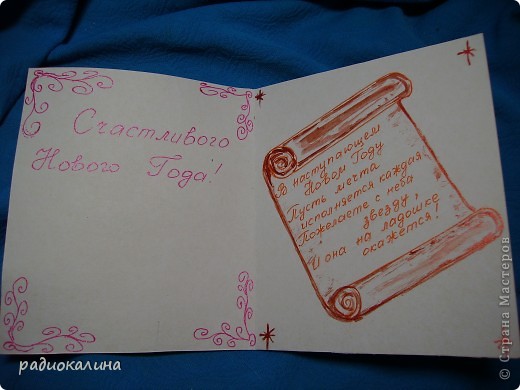 Счастливого
Нового Года!
В наступающем
Новом Году
Пусть мечта
исполняется каждая
Пожелаете с неба
звезду,
И она на ладошке
окажется!
радиокалина
© Страна Мастеров